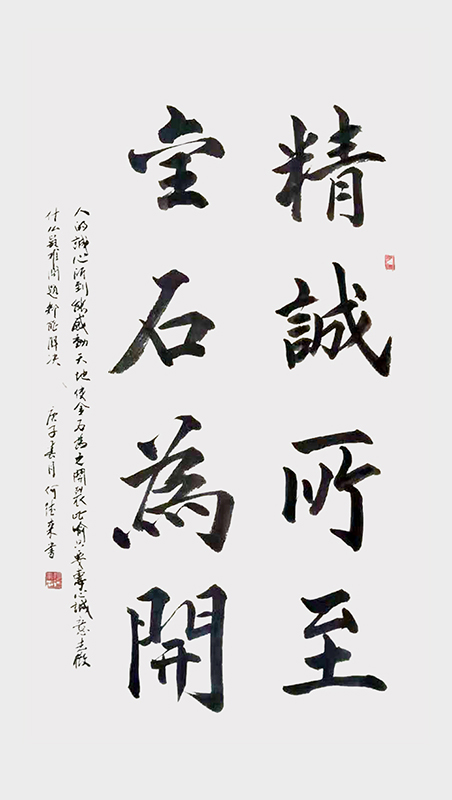 精誠所至
金石為開
人的誠心所到能感動天地使金石為之開裂比喻只要專心誠意去做
什么疑難問題都能解决 庚子春月何德来書